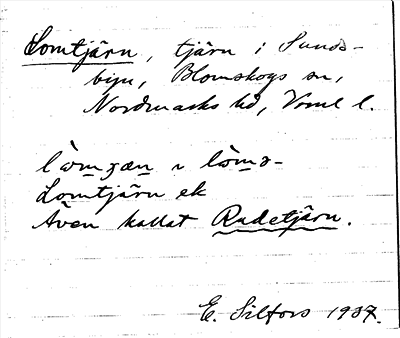 Lomtjärn, tjärn i Sunds-
byn, Blomskogs sn,
Nordmarks hd, Vrml l.
Lomtjärn ek
Även kallat Rudetjärn.
E. Silfors 1937.